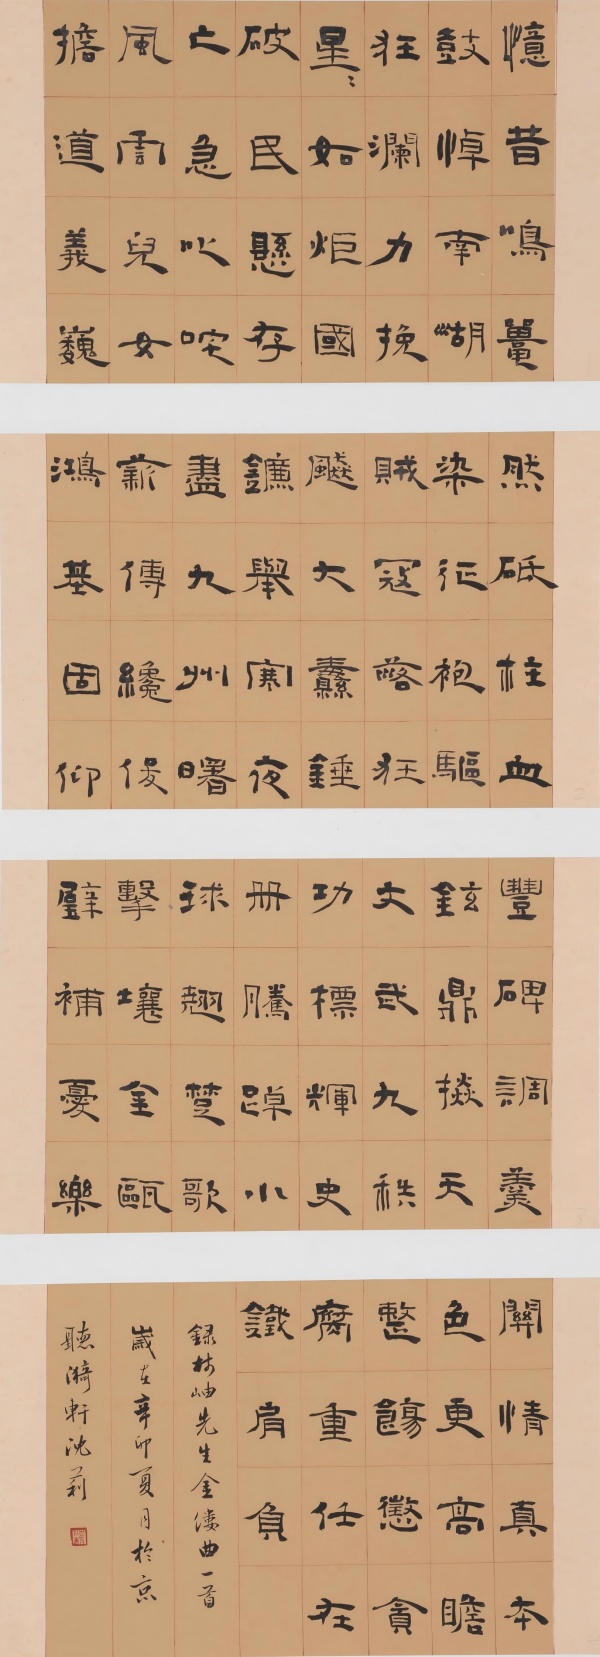 憶昔鳴鼉
鼓棹南湖
狂瀾力挽
星〻如炬國
破民懸存
亡急叱咤
風雲兒女
擔道義巍
然砥柱血
染征袍驅
賊寇狂
飈大纛錘
鐮舉寒夜
盡九州曙
薪傳纔俊
鴻基固仰
豐碑調羹
鉉鼎掞天
文武九秩
功標輝史
冊騰踔小
球翹楚歌
擊壤金甌
璧補憂樂
關情真本
色更高瞻
整飭懲貪
腐重任在
鐵肩負
録林岫先生金縷曲一首
歲在辛卯夏月於京
聽漪軒沈莉